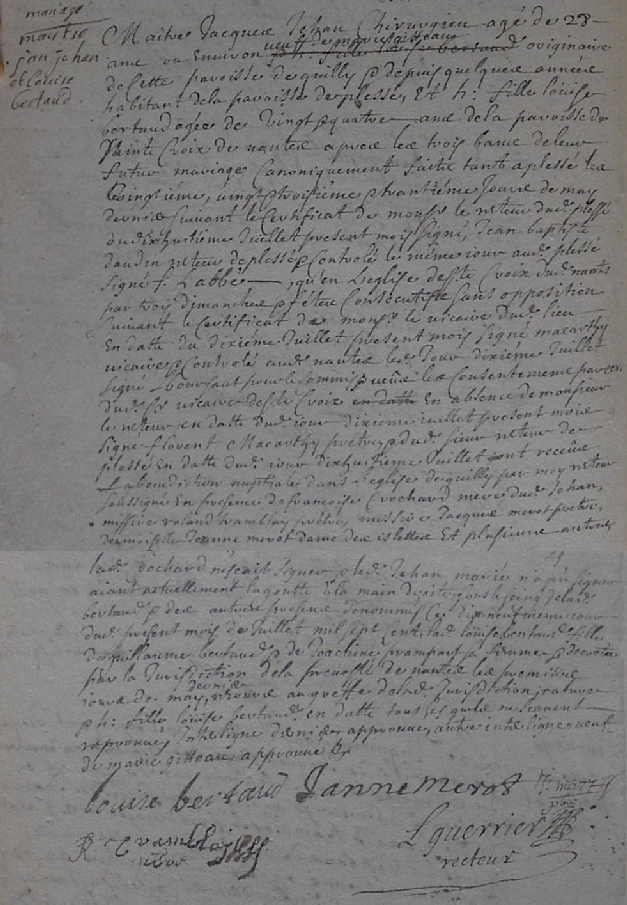 mariage
maitre
jan jehan
et Louise
bertaud
Maitre Jacques Jehan Chirurgien agé de 28
ans ou Environ veuf de marie gitteau originaire
de Cette paroisse de quilly & depuis quelques années
habitant de la paroisse de plessé, Et h: fille louise
bertaud agée de vingt & quatre ans de la paroisse de
Sainte Croix de nantes apres les trois bans de leur
futur mariage Canoniquement faits tant a plessé les
vingtième, vingt & troisième & trantième Jours de may
dernier suivant le Certificat de monsr le recteur dud. plessé
du dixhuitième Juillet present mois signé, Jean baptiste
daudin recteur de plessé & Controlé le même jour aud. plessé
signé f. Labbé, qu'en L'eglise de Ste Croix dud. nantes
par trois dimanches & fétes Consécutifs sans opposition
suivant le Certificat de monsr le vicaire dud. lieu
En datte du dixième Juillet present mois signé macarthy
vicaire & Controlé aud. nantes led. Jour dixième Juillet
signé pour le Commis & veüe les Consentements
dud. Sr vicaire de Ste Croix en datte En absence de monsieur
le recteur en datte dud. jour dixieme juillet present mois
signé florent Macarthy pretre, & dud. sieur recteur de
plessé En datte dud. jour dixhuitième Juillet ont receüe
La benediction nuptiale dans L'eglise de quilly par moy recteur
soussigné En presence de francoise Crochard mere dud. Jehan,
missire roland tramblay prêtre, missire Jacques merot pretre,
demoiselle Jeanne merot dame des islettes Et plusieurs autres
lad. Crochard ne scait signer & led. Jehan marié n'a peu signer
aiant actuellement la goutte à la main droite, sous le seing de lad.
bertaud & des autres presents denommés Ces dix neufième jour
dud. present mois de Juillet mil sept Cent, lad. louise bertaud fille
de guillaume bertaud & de Joachine
par la Jurisdiction de la prevosté de nantes le première
jour de may dernier, au greffe de lad. Jurisdiction, rature
& h: fille louise bertaud, en datte
reprouvés, interligne dernier approuvé, autre interligne veuf
de marie gitteau approuvé
Louise bertaud Jannemerot
R Tramblay
L guerrier
recteur